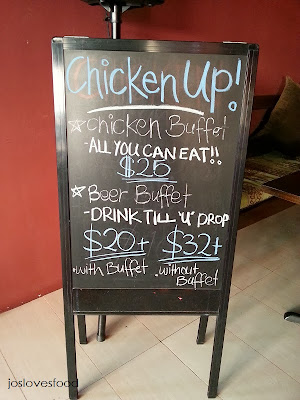 Chicken Up!
☆ Chicken Buffet
-ALL YOU CAN EAT!!
$25
☆ Beer Buffet
-DRINK TILL "U" DROP
$20+ $32+
•with Buffet •without
Buffet
joslovesfood